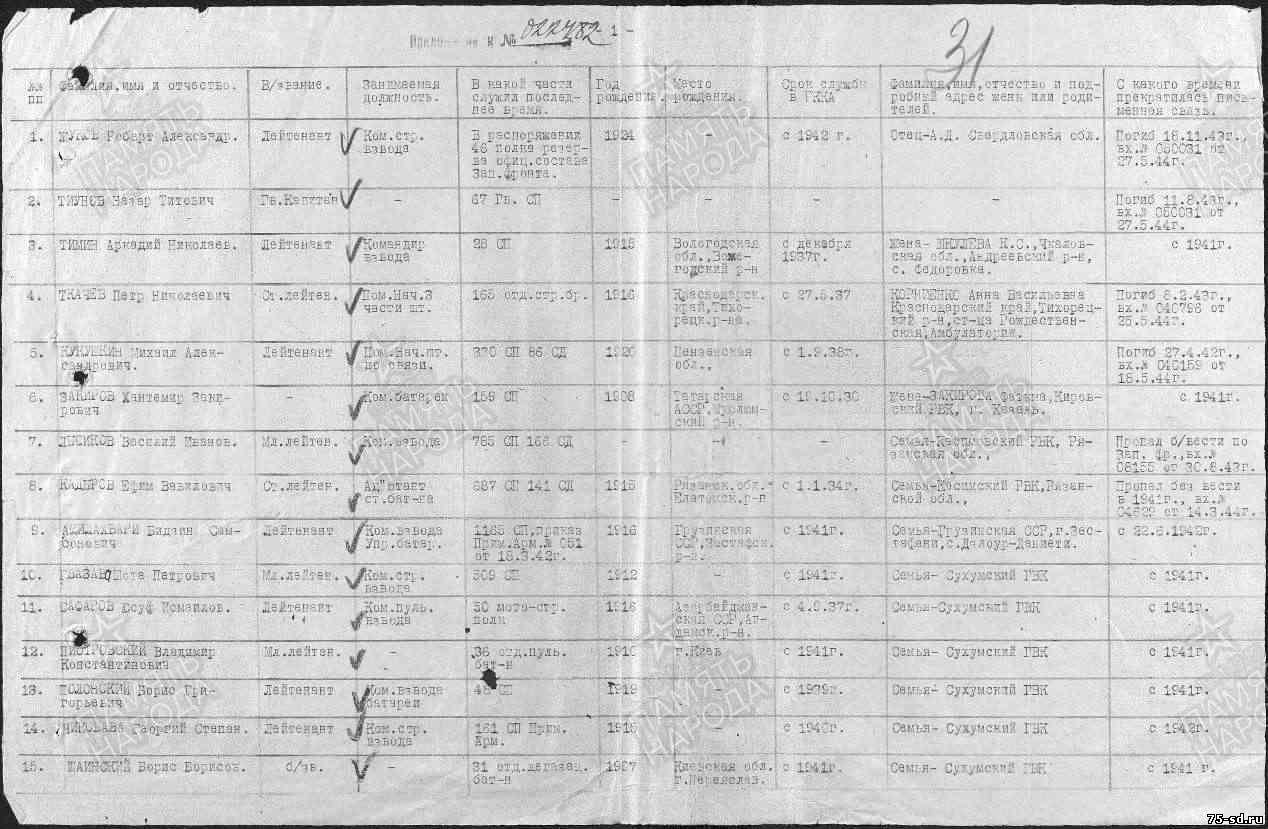 к № 022482 - 1 -
31
№№ пп
Фамилия,имя и отчество.
В/звание.
Занимаемая должность.
В какой части служил последнее время.
Год рождения.
Место рождения.
Срок службы в РККА
Фамилия,имя,отчество и подробный адрес жены или родителей.
С какого времени прекратилась письменная связь.
1. Роберт Александр. Лейтенант Ком.стр. взвода
В распоряжении 46 полка резерва офиц.состава Зап.фронта.
1924 - с 1942 г. Отец-А.Д. Свердловская обл.
Погиб 18.11.43г., вх.№ 050031 от 27.5.44г.
2. ТИУНОВ Назар Титович Гв.Капитан - 67 Гв. СП - - - -
Погиб 11.8.43г., вх.№ 050031 от 27.5.44г.
3. ТИМИН Аркадий Николаев. Лейтенант Командир взвода 28 СП
Вологодская обл., р-н
с декабря 1937г.
Жена- К.С.,Чкаловская обл.,Андреевский р-н, с. Федоровка.
с 1941г.
4. ТКАЧЕВ Петр Николаевич Ст.лейтен. Пом.Нач.3 части шт. 165 отд.стр.бр. 1916
Краснодарск. край,Тихорецк.р-на.
с 27.5.37
КОРНИЕНКО Анна Васильевна Краснодарский край,Тихорецкий р-н,ст-ца Рождественская,Амбулатория.
Погиб 8.2.43г., вх.№ 040798 от 25.5.44г.
5. КУКУШКИН Михаил Александрович. Лейтенант Пом.Нач.шт. по связи. 330 СП 86 СД 1920
Пензенская обл.,
с 1.9.38г.
Погиб 27.4.42г., вх.№ 040159 от 18.5.44г.
6. ЗАКИРОВ Хантемир Закирович - Ком.батареи 159 СП 1908
Татарская АССР, р-н.
с 19.10.30
Жена-ЗАКИРОВА Фатима,Кировский РВК, г. Казань.
с 1941г.
7. Василий Иванов. Мл.лейтен. Ком.взвода 785 СП 166 СД - - -
Семья-Касимовский РВК, Рязанская обл.,
Пропал б/вести по Зап. Фр.,вх.№ 08155 от 30.6.43г.
8. КАДЫРОВ Ефим Вавилович Ст.лейтен. Ад"ютант ст.бат-на 687 СП 141 СД 1915
Рязанск.обл. Елатомск.р-н
с 1.1.34г.
Семья-Косимский РВК,Рязанской обл.,
Пропал без вести в 1941г., вх.№ 04629 от 14.3.44г.
9. АМИЛАХВАРИ Лейтенант Ком.взвода Упр.батар.
1165 СП,приказ Прим.Арм.№ 051 от 18.3.42г.
1916
Грузинская ССР, р-н.
с 1941г.
Семья-Грузинская ССР,
с 22.6.1942г.
10. Шота Петрович Мл.лейтен. Ком.стр. взвода 509 СП 1912 - с 1941г. Семья- Сухумский ГВК с 1941г.
11. САФАРОВ Юсуф Исмаилов. Лейтенант Ком.пуль. взвода 50 мото-стр. полк 1916
Азербайджанская ССР,Агдамск.р-н.
с 4.9.37г. Семья-Сухумский ГВК с 1941г.
12. ПИОТРОВСКИЙ Владимир Константинович Мл.лейтен. - 36 отд.пуль. бат-н 1910 г.Киев с 1941г. Семья- Сухумский ГВК с 1941г.
13. ПОЛОНСКИЙ Борис Григорьевич Лейтенант Ком.взвода батареи СП 1919 - с 1939г. Семья- Сухумский ГВК с 1941г.
14. Георгий Степан. Лейтенант Ком.стр. взвода 161 СП Прим. Арм. 1915 - с 1940г. Семья- Сухумский ГВК с 1942г.
15. ШАИНСКИЙ Борис Борисов. б/зв. - 31 отд.дегазац. бат-н 1907
Киевская обл. г.Переяслав.
с 1941г. Семья- Сухумский ГВК с 1941 г.
ПАМЯТЬ НАРОДА
75-sd.ru